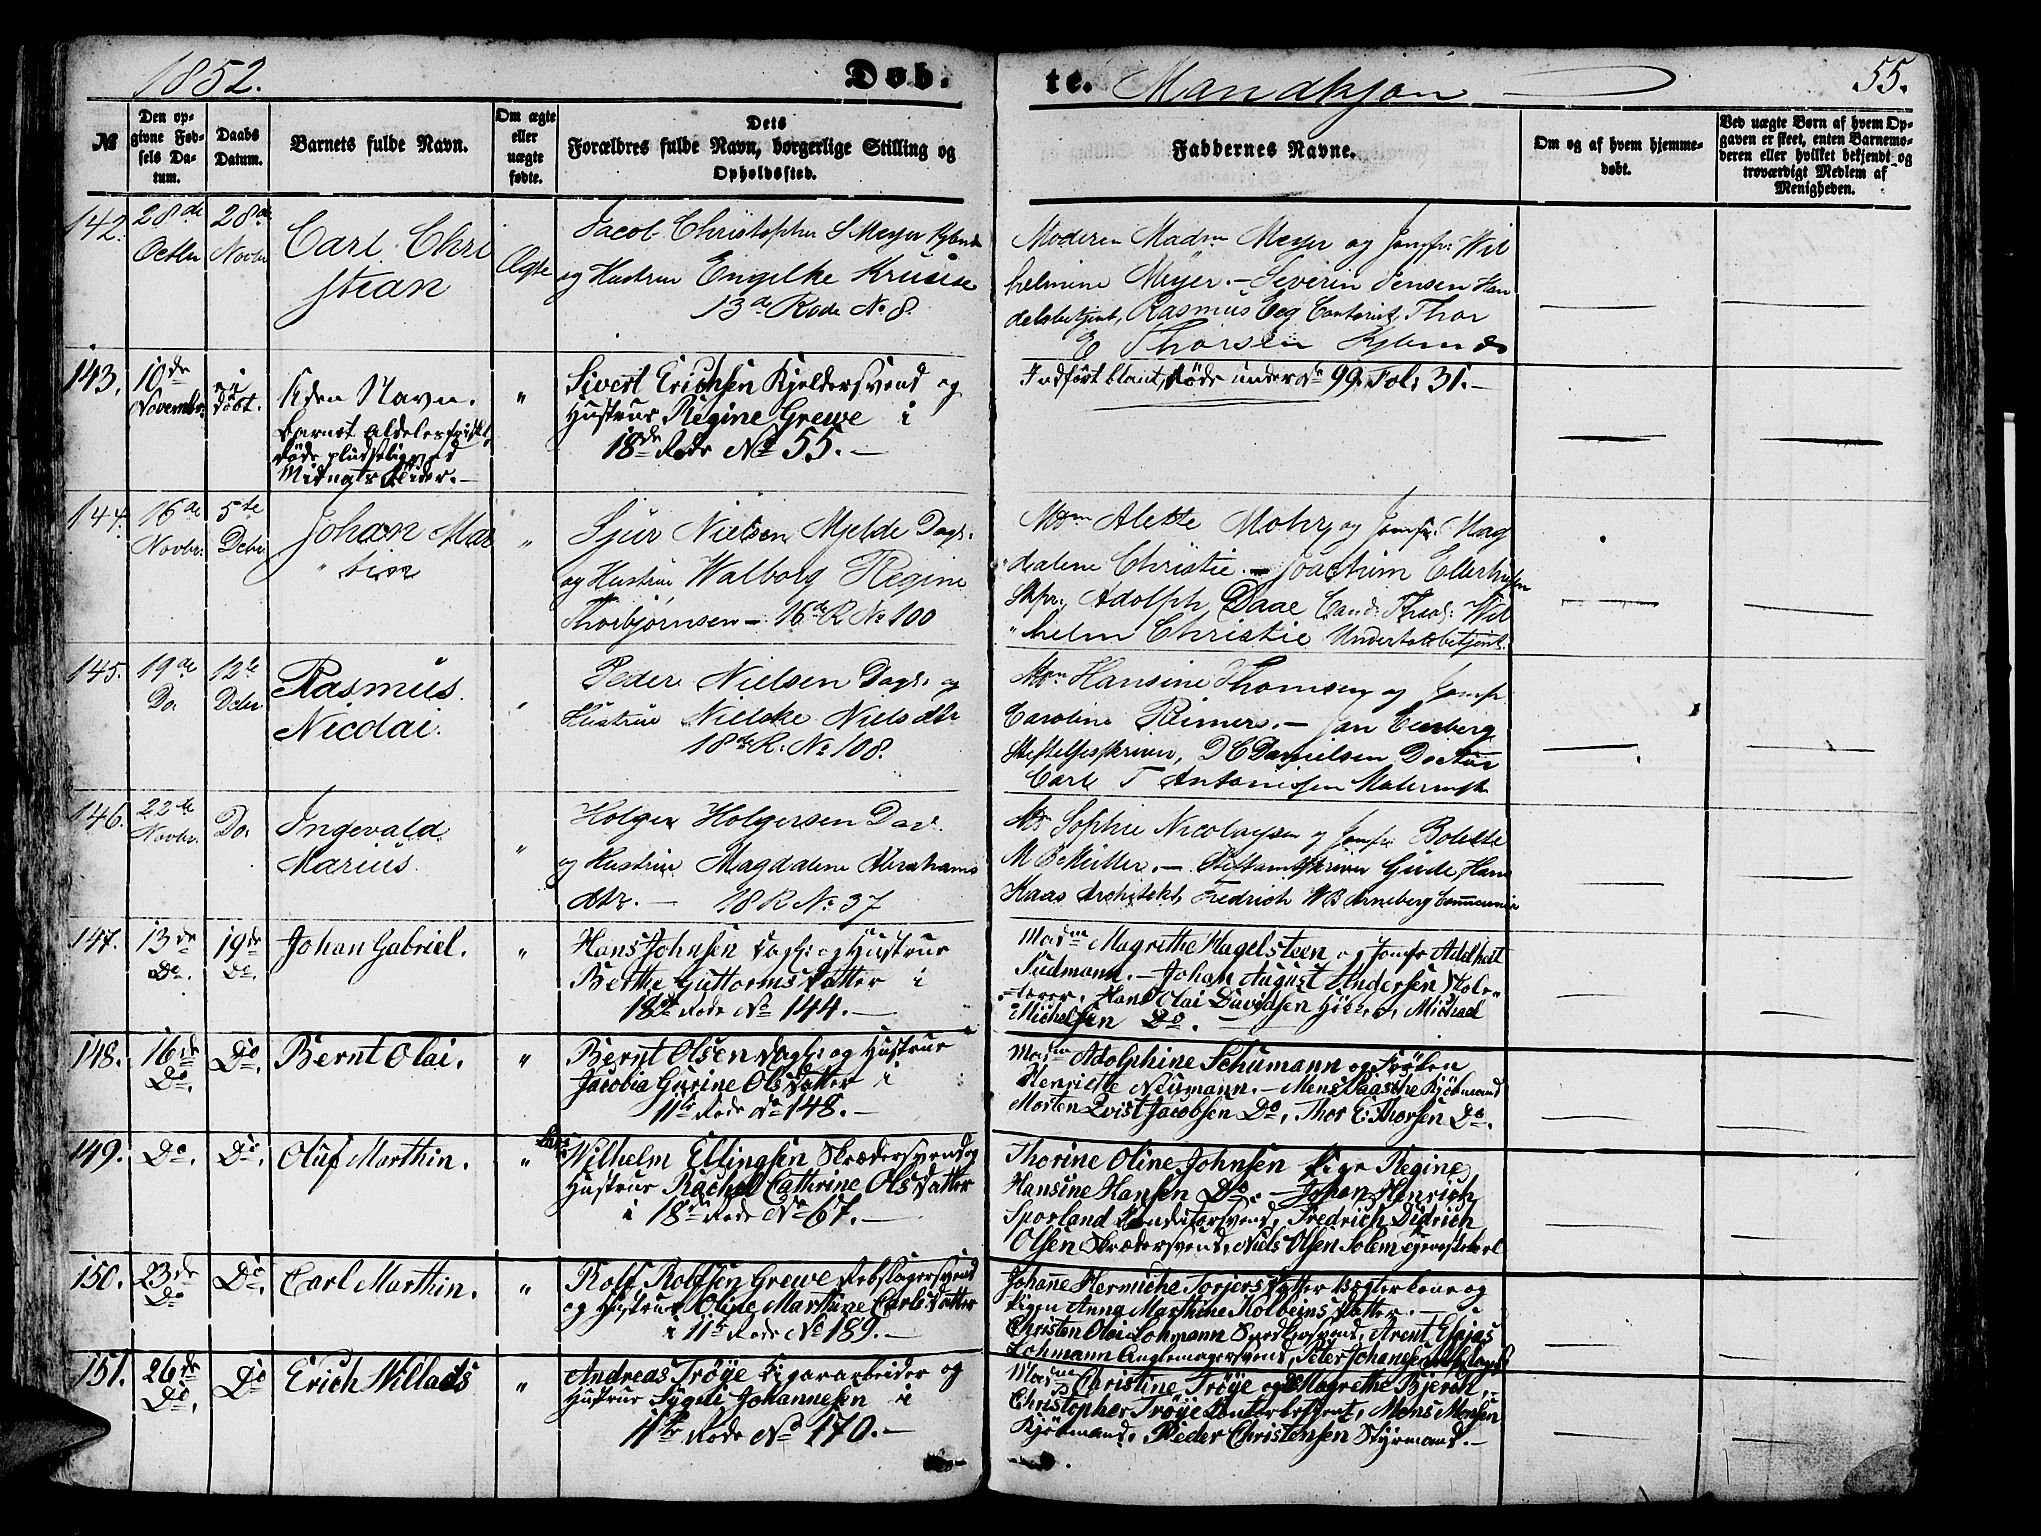 1852.
Døb-
te. Mandkjøn
55.
№
Den op-
givne Fød-
sels Da-
tum.
Daabs
Datum.
Barnets fulde Navn.
Om ægte
eller
uægte
fødte.
Dets
Forældres fulde Navn, borgerlige Stilling og
Opholdssted.
Faddernes Navne.
Om og af hvem hjemme-
døbt.
Ved uægte Børn af hvem Op-
gaven er skeet, enten Barnemo-
deren eller hvilket bekjendt og
troværdigt Medlem af
Menigheden.
142.
28de
Octbr
28de
Novbr
Carl Chri
stian
Ægte
Jacob Christopher S Meyer
og Hustrue Engelke Kruse
13de Rode No 8.
Moderen Madm Meyer og Jomfr: Wil
helmine Meyer. – Severin Jensen Han
delsbetjent, Rasmus Eeg Contorist, Thor
E Thorsen Kjbmd
143.
10de
Novembr.
u
døbt.
Uden Navn.
Barnet aldeles friskt,
døde pludselig ved
Midnats Tider. –
"
Sivert Erichsen Kjeldersvend og
Hustrue Regine Grewe i
18de Rode No 55. –
Indført blant Døde under No 99. Fol: 31. –
144.
16de
Novbr.
5te
Debr
Johan Mar
" tin
"
Sjur Nielsen Mjelde Dags.
og Hustrue Walborg Regine
Thorbjørnsen – 16de R No 100
Mdm Alette Mohr og Jomfr: Mag
dalene Christie. – Joachim Ellerhusen
Skpr., Adolph Daae Cand: Theol: Wil
" helm Christie Undertoldbetjent.
145.
19de
Do
12te
Debr
Rasmus
Nicolai.
"
Peder Nielsen Dags. og
Hustrue Nielske Nielsdtr
18de R. No 108.
Mdm Hansine Thomsen og Jomfr
Caroline Reimers. – Jan
DC Danielsen Doctor
Carl T Antonissen Malermstr
146.
22de
Novbr.
Do
Ingevald
Marius.
"
Holger Holgersen Dav.
og Hustrue Magdalene Abrahams
dtr. – 18 R No 37
Md Sophie Nicolaysen og Jomfr Bolette
M B Müller. – Stiftamtskriver Gude, Hans
Kaas Architekt, Fredrich W B Arneberg
147.
13de
Do.
19de
Do.
Johan Gabriel.
"
Hans Johnsen Dagk: og Hustrue
Berthe Guttorms Datter i
18de Rode No 144. –
Madm Magrethe Hagelsteen og Jomfr Adelheit
Sudmann. – Johan August Andersen
Hans Olai Davidsen Michael
Michelsen Do. –
148.
16de
Do.
Do.
Bernt Olai.
"
Bernt Olsen Dagk: og Hustrue
Jacobia Gurine Ols Datter i
11te Rode No 148. –
Madm Adolphine Schumann og Frøken
Henriette Neumann. – Mons Paasche Kjøbmand
Morten Qvist Jacobsen Do, Thor E: Thorsen Do.
149.
Do.
Do.
Oluf Marthin.
"
Wilhelm Ellingsen Skrædersvend og
Hustrue Rachel Cathrine Ols Datter
i 18de Rode No 67. –
Thorine Oline Johnsen Pige Regine
Hansine Hansen Do. – Johan Henrich
Sporland Conditorsvend, Fredrich Didrich
Olsen Skrædersvend, Niels Olsen Solem
150.
23de
Do
Do
Carl Marthin.
"
Rolf Rolfsen Grewe Rebslagersvend
og Hustrue Oline Marthine Carls Datter
i 11te Rode No 189. –
Johanne Hermiche Torjers Datter og
Pigen Anna Marthine Kolbeins Datter. –
Christen Olai Lohmann Arent Esaias
Lohmann Peter Johansen
151.
26de
Do
Do
Erich Willads
"
Andreas Trøye Cigararbeider og
Hustrue Sygni Johannesen i
11te Rode No 170. –
Madm Christine Trøye og Do Magrethe Bjerch, –
Christopher Trøye Contorbetjent, Mons Monsen
Kjøbmand, Peder Christensen Styrmand. –